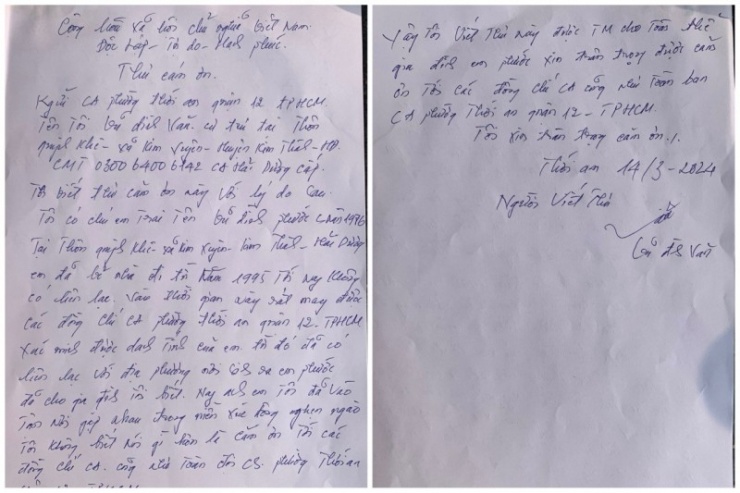 Cộng hòa xã hội chủ nghĩa Việt Nam
Độc Lập - Tự do - Hạnh phúc.
Thư cảm ơn.
Kgửi CA phường thới an quận 12 TPHCM.
Tên Tôi Vũ đình Văn. cư trú tại Thôn
quỳnh Khê - xã Kim Xuyên - Huyện Kim Thành - HD.
CMT 030064006142 CA Hải Dương cấp.
Tôi viết thư cảm ơn này với lý do sau.
Tôi có chú em Trai Tên Vũ đình phước 1976
Tại Thôn quỳnh Khê - xã Kim xuyên - Kim Thành - Hải Dương
em đã bỏ nhà đi từ Năm 1995 Tới nay không
có liên lạc. thời gian này rất may được
các đồng chí CA phường thới an quận 12 - TPHCM
xác minh được danh Tính của em từ đó đã có
liên lạc với địa phương nơi sinh ra em phước
để cho gia đình tôi biết. Nay anh em Tôi đã vào
Tận Nơi gặp nhau trong niềm xúc động nghẹn ngào
Tôi không biết nói gì hơn là cảm ơn Tới các
đồng chí CA. cũng như Toàn đội CS. phường Thới an
Vậy Tôi Viết Thư này được TM cho Toàn thể
gia đình em phước xin trân trọng được cảm
ơn Tới các đồng chí CA cũng như Toàn ban
CA phường Thới an quận 12 - TPHCM.
Tôi xin trân trọng cảm ơn.
Thới an 14/3 - 2024
Người Viết Thư
Vũ đình Văn